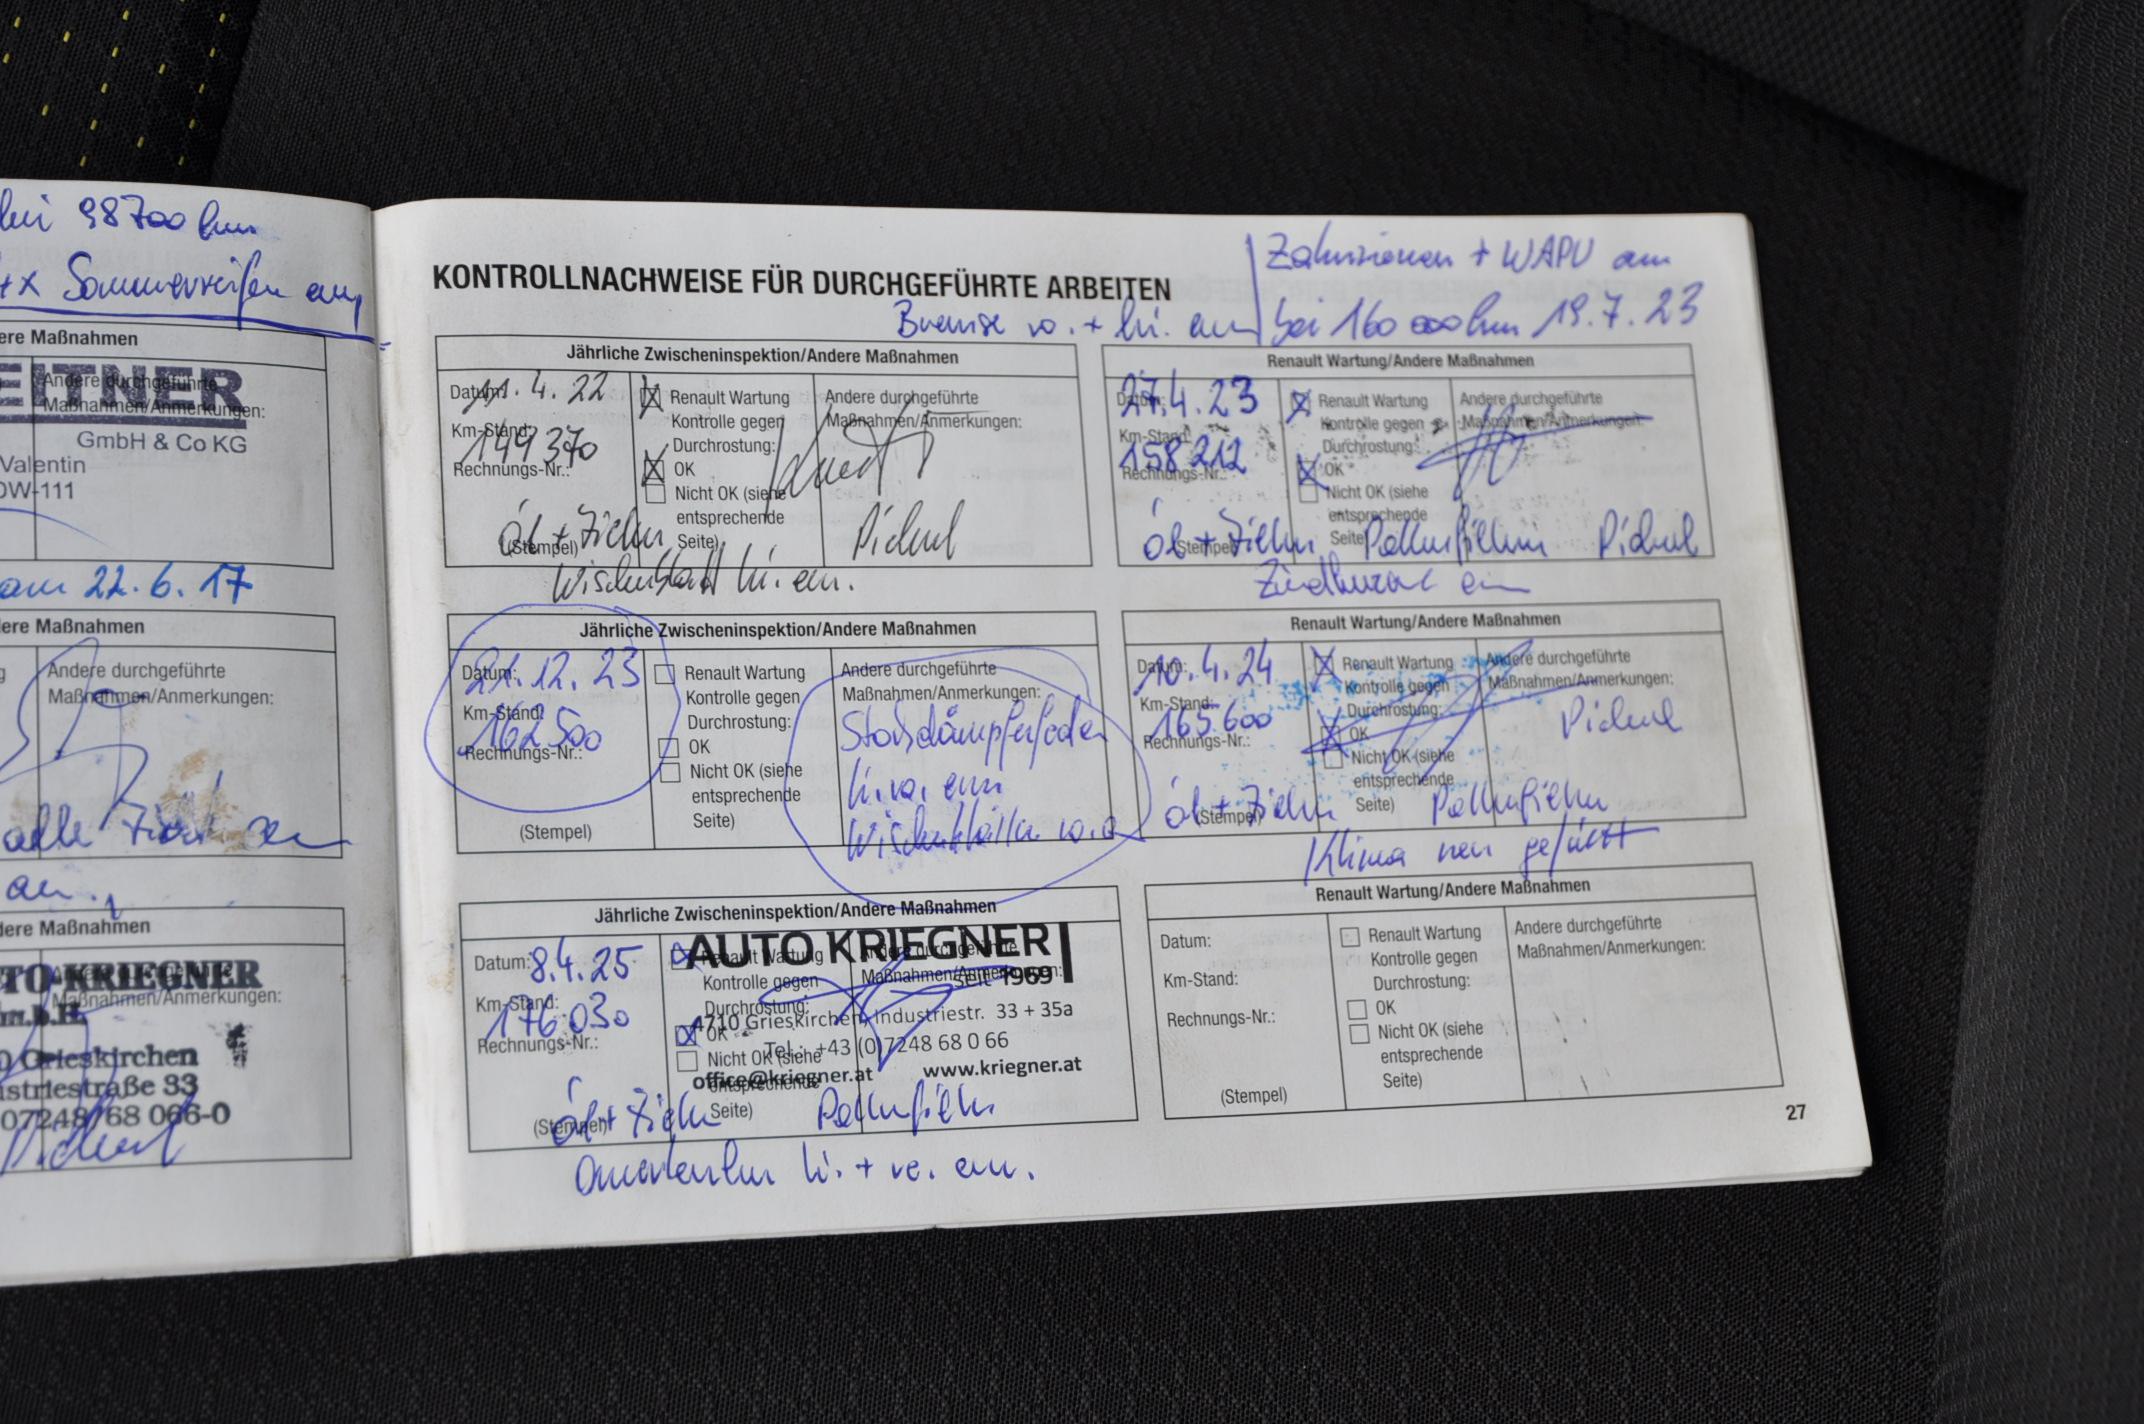 bei 98700 km
4x Sommerreifen em
ere Maßnahmen
EITNER
Andere durchgeführte
Maßnahmen/Anmerkungen:
GmbH & Co KG
Valentin
DW-111
am 22.6.17
dere Maßnahmen
g
Andere durchgeführte
Maßnahmen/Anmerkungen:
alle
dere Maßnahmen
TO-KRIEGNER
Maßnahmen/Anmerkungen:
m.b.H.
0 Grieskirchen
striestraße 33
07248/68 066-0
Zahnriemen + WAPU em
KONTROLLNACHWEISE FÜR DURCHGEFÜHRTE ARBEITEN
Bremse vo. + hi. em
bei 160 000 km 19.7.23
Jährliche Zwischeninspektion/Andere Maßnahmen
Datum: 11.4.22
Km-Stand: 149 370
Rechnungs-Nr.:
Renault Wartung
Kontrolle gegen
Durchrostung:
OK
Nicht OK (siehe
entsprechende
Seite)
Andere durchgeführte
Maßnahmen/Anmerkungen:
Öl + Filter
(Stempel)
Wischerblatt hi. em.
Renault Wartung/Andere Maßnahmen
Datum: 27.4.23
Km-Stand: 158 212
Rechnungs-Nr.:
Renault Wartung
Kontrolle gegen
Durchrostung:
OK
Nicht OK (siehe
entsprechende
Seite)
Andere durchgeführte
Maßnahmen/Anmerkungen:
Öl + Filter Pollenfilter
(Stempel)
Jährliche Zwischeninspektion/Andere Maßnahmen
Datum: 21.12.23
Km-Stand: 162 500
Rechnungs-Nr.:
(Stempel)
Renault Wartung
Kontrolle gegen
Durchrostung:
OK
Nicht OK (siehe
entsprechende
Seite)
Andere durchgeführte
Maßnahmen/Anmerkungen:
Stossdämpferfeder
li. vo. em
Wischerblätter vo.
Renault Wartung/Andere Maßnahmen
Datum: 10.4.24
Km-Stand: 165.600
Rechnungs-Nr.:
Renault Wartung
Kontrolle gegen
Durchrostung:
OK
Nicht OK (siehe
entsprechende
Seite)
Andere durchgeführte
Maßnahmen/Anmerkungen:
Öl + Filter Pollenfilter
(Stempel)
Klima neu gefüllt
Jährliche Zwischeninspektion/Andere Maßnahmen
Datum: 8.4.25
Km-Stand: 176 030
Rechnungs-Nr.:
Renault Wartung
Kontrolle gegen
Durchrostung:
OK
Nicht OK (siehe
entsprechende
Seite)
Andere durchgeführte
Maßnahmen/Anmerkungen:
AUTO KRIEGNER
seit 1969
4710 Grieskirchen, Industriestr. 33 + 35a
Tel.: +43 (0)7248 68 0 66
office@kriegner.at www.kriegner.at
Öl + Filter Pollenfilter
(Stempel)
Querlenker li. + re. em.
Renault Wartung/Andere Maßnahmen
Datum:
Km-Stand:
Rechnungs-Nr.:
(Stempel)
Renault Wartung
Kontrolle gegen
Durchrostung:
OK
Nicht OK (siehe
entsprechende
Seite)
Andere durchgeführte
Maßnahmen/Anmerkungen:
27